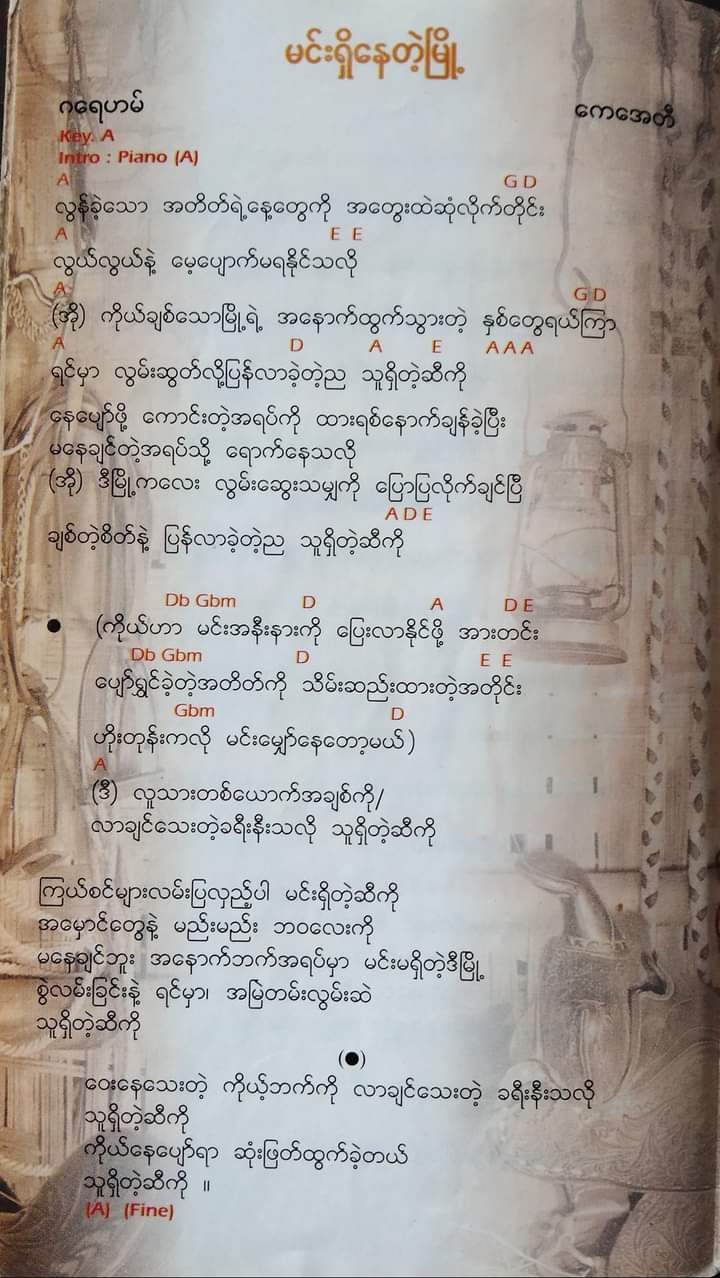 မင်းရှိနေတဲ့မြို့
ဂရေဟမ် ကေအေတီ
Key. A
Intro : Piano (A)
A G D
လွန်ခဲ့သော အတိတ်ရဲ့နေ့တွေကို အတွေးထဲဆုံလိုက်တိုင်း
A E E
လွယ်လွယ်နဲ့ မေ့ပျောက်မရနိုင်သလို
A G D
(အို) ကိုယ်ချစ်သောမြို့ရဲ့ အနောက်ထွက်သွားတဲ့ နှစ်တွေရယ်ကြာ
A D A E A A A
ရင်မှာ လွမ်းဆွတ်လို့ပြန်လာခဲ့တဲ့ည သူရှိတဲ့ဆီကို
နေပျော်ဖို့ ကောင်းတဲ့အရပ်ကို ထားရစ်နောက်ချန်ခဲ့ပြီး
မနေချင်တဲ့အရပ်သို့ ရောက်နေသလို
(အို) ဒီမြို့ကလေး လွမ်းဆွေးသမျှကို ပြောပြလိုက်ချင်ပြီ
A D E
ချစ်တဲ့စိတ်နဲ့ ပြန်လာခဲ့တဲ့ည သူရှိတဲ့ဆီကို
Db Gbm D A D E
● (ကိုယ်ဟာ မင်းအနီးနားကို ပြေးလာနိုင်ဖို့ အားတင်း
Db Gbm D E E
ပျော်ရွှင်ခဲ့တဲ့အတိတ်ကို သိမ်းဆည်းထားတဲ့အတိုင်း
Gbm D
ဟိုးတုန်းကလို မင်းမျှော်နေတော့မယ်)
A
(ဒီ) လူသားတစ်ယောက်အချစ်ကို/
လာချင်သေးတဲ့ခရီးနီးသလို သူရှိတဲ့ဆီကို
ကြယ်စင်များလမ်းပြလှည့်ပါ မင်းရှိတဲ့ဆီကို
အမှောင်တွေနဲ့ မည်းမည်း ဘဝလေးကို
မနေချင်ဘူး အနောက်ဘက်အရပ်မှာ မင်းမရှိတဲ့ဒီမြို့
စွဲလမ်းခြင်းနဲ့ ရင်မှာ၊ အမြဲတမ်းလွမ်းဆဲ
သူရှိတဲ့ဆီကို
(●)
ဝေးနေသေးတဲ့ ကိုယ့်ဘက်ကို လာချင်သေးတဲ့ ခရီးနီးသလို
သူရှိတဲ့ဆီကို
ကိုယ်နေပျော်ရာ ဆုံးဖြတ်ထွက်ခဲ့တယ်
သူရှိတဲ့ဆီကို ။
(A) (Fine)